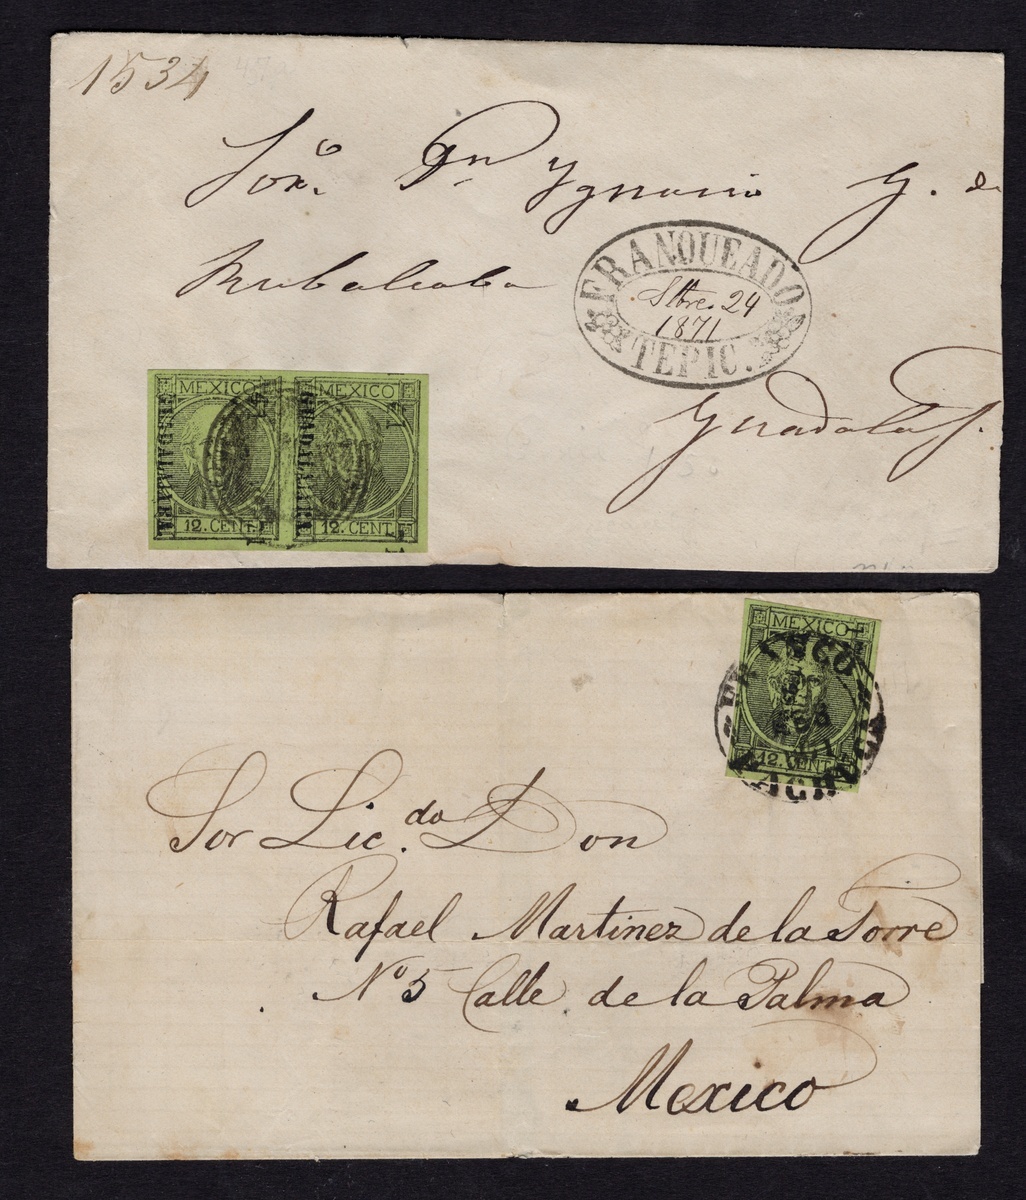 1534
Sor. Dn Ygnacio G. de
Rubalcaba
FRANQUEADO
Stbre. 24
1871
TEPIC.
Guadalaj.
MEXICO MEXICO
GUADALAJARA GUADALAJARA
12. CENT. 12. CENT.
MEXICO
FRANCO
12. CENT.
Sor Lic.do Don
Rafael Martinez de la Torre
No 5 Calle de la Palma
Mexico